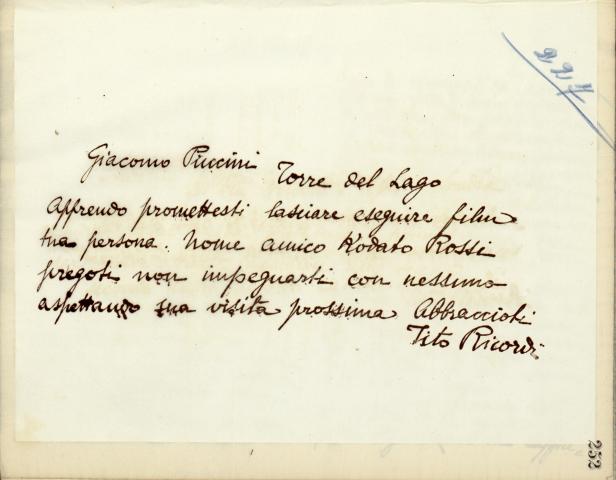 227
Giacomo Puccini Torre del Lago
Apprendo promettesti lasciare eseguire film
tua persona. Nome amico Rossi
pregoti non impegnarti con nessuno
aspettando sua visita prossima Abbraccioti
Tito Ricordi
252